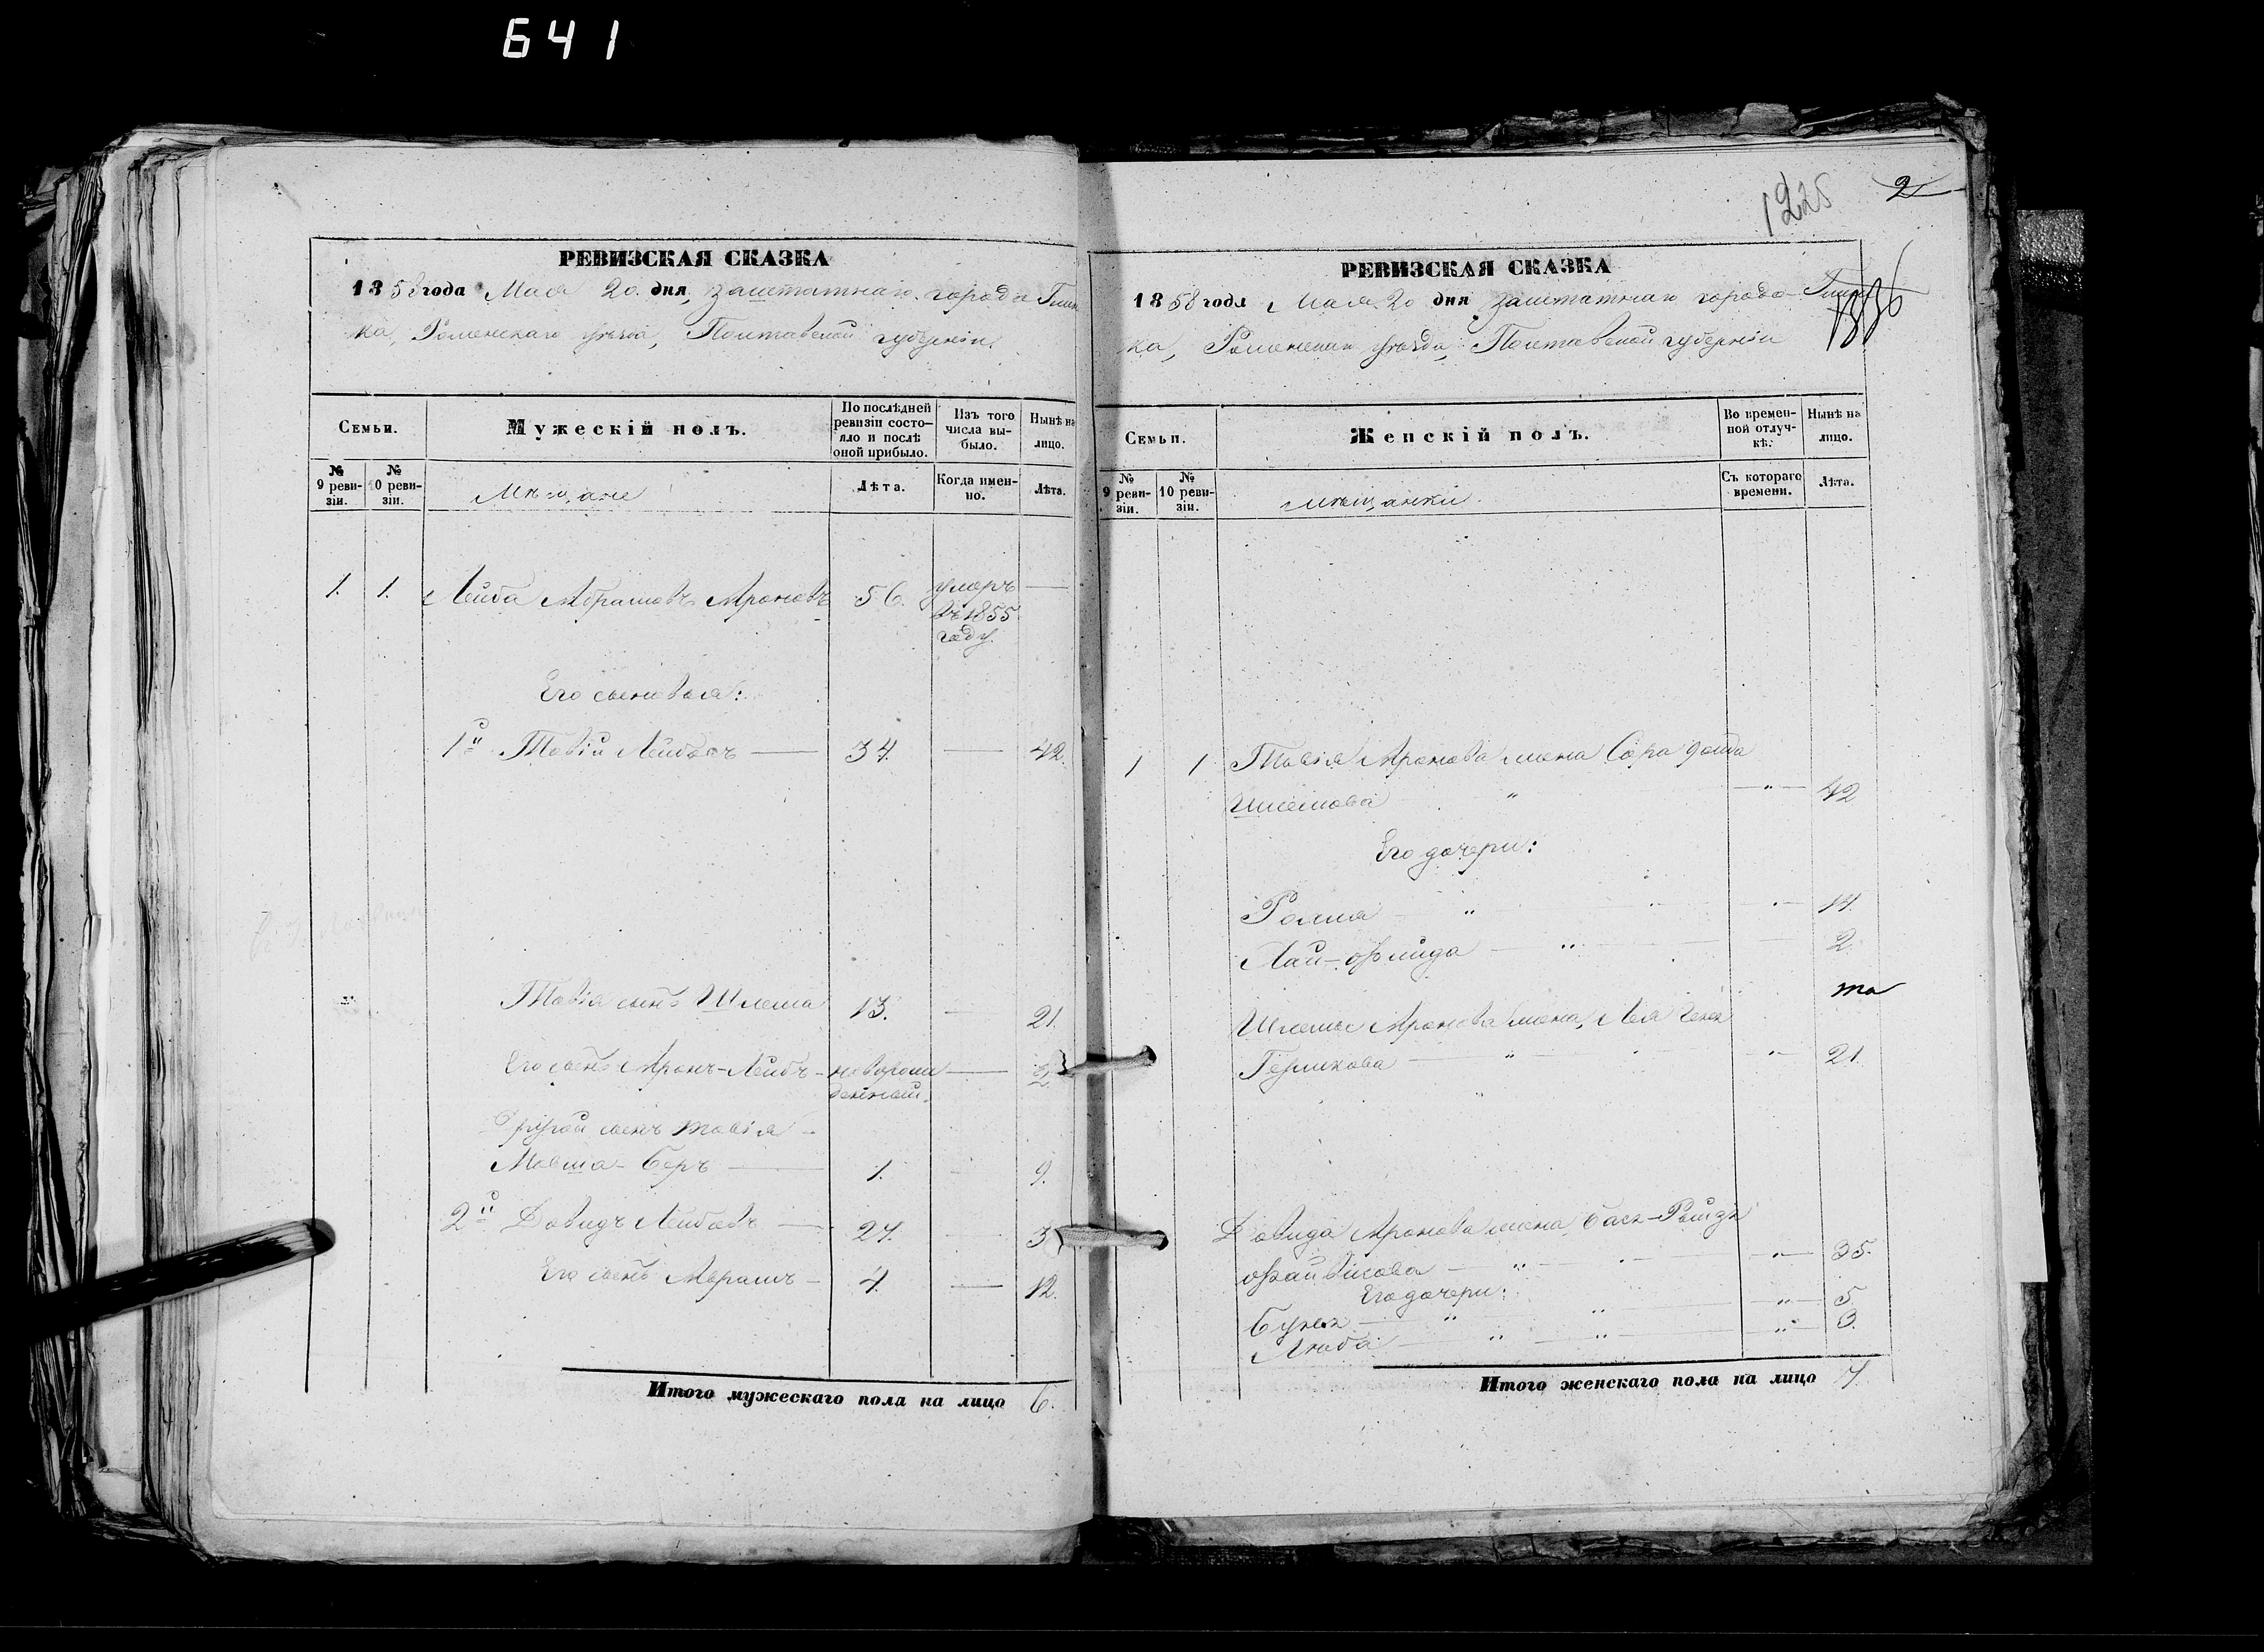 641
РЕВИЗСКАЯ СКАЗКА
1858 года Мая 20. дня, заштатнаго города Глинска,
ка, Роменскаго уѣзда, Полтавской губерніи.
Семьи.
Мужескій полъ.
По послѣдней ревизіи состояло и послѣ оной прибыло.
Изъ того числа выбыло.
Нынѣ на лицо.
№ 9 ревизіи.
№ 10 ревизіи.
Мѣщане
Лѣта.
Когда именно.
Лѣта.
1. 1. Лейба Абрамовъ Ароновъ 56. умеръ —
въ 1855
году.
Его сыновья:
1й Товій Лейбовъ — 34. — 42.
Товія сынъ Шлема 13. — 21.
Его сынъ Аронъ-Лейбъ - новорож —
денный.
Другой сынъ Товія -
Мовша-Беръ — 1. — 9.
2й Довидъ Лейбовъ — 27. —
Его сынъ Абрамъ - 4. — 12.
Итого мужескаго пола на лицо 6.
1225
2
РЕВИЗСКАЯ СКАЗКА
1858 года Мая 20 дня заштатнаго города
ка, Роменскаго уѣзда, Полтавской губерніи
Семьи.
Женскій полъ.
Во временной отлучкѣ.
Нынѣ на лицо.
№ 9 ревизіи.
№ 10 ревизіи.
мѣщанки.
Съ котораго времени.
Лѣта.
1 1 Товія Аронова жена Сора
Шлемова " — " — 42
Его дочери:
" 14.
" — 2.
Шлемы Аронова жена, Лея
Гершкова — " " — 21.
Довида Аронова жена Бася-Рейзя
Файвишова — " — " — 35.
Его дочери:
Буня — " " — " — 5.
Люба — " — " — " — 3.
Итого женскаго пола на лицо 7.